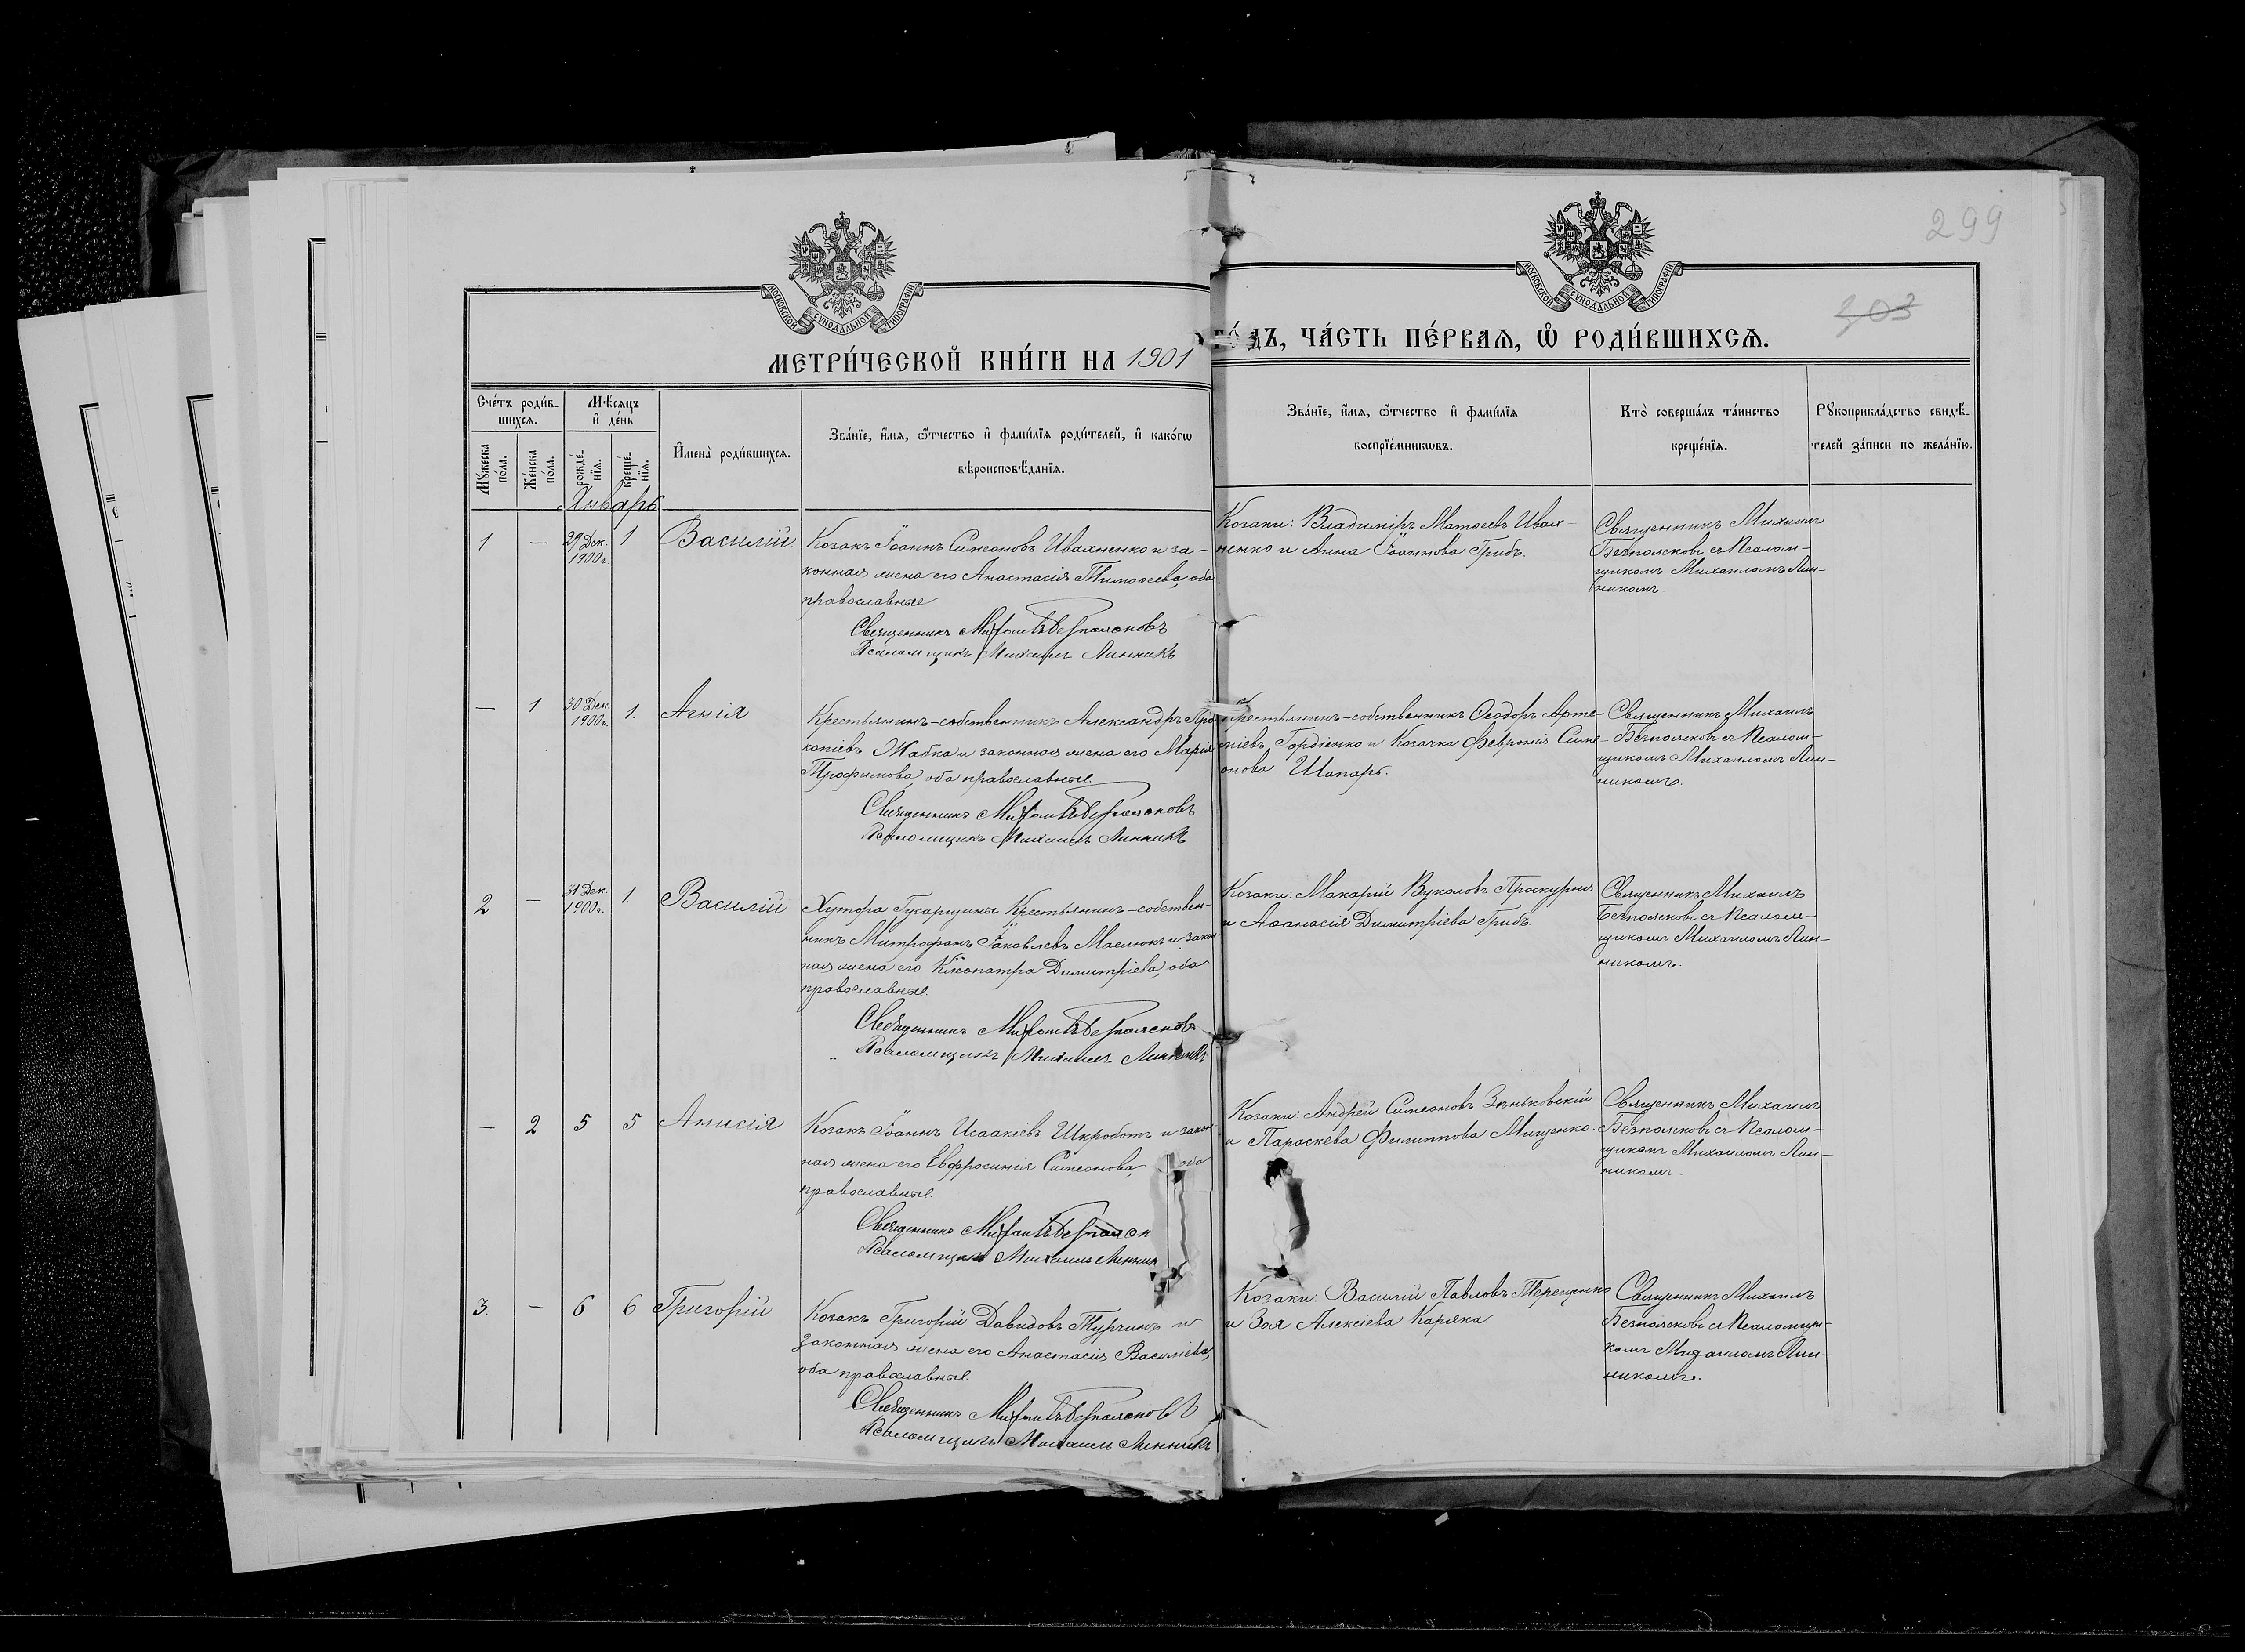 299
303
МОСКОВСКОЙ СѴНОДАЛЬНОЙ ТИПОГРАФІИ
МОСКОВСКОЙ СѴНОДАЛЬНОЙ ТИПОГРАФІИ
МЕТРИ́ЧЕСКОЙ КНИ́ГИ НА 1901
ГО́ДЪ, ЧА́СТЬ ПЕ́РВАЯ, Ѡ҆ РОДИ́ВШИХСЯ.
Сче́тъ роди́в-
шихсѧ.
Мꙋ́жеска по́ла.
Же́нска по́ла.
Мѣ́сѧцъ
и҆ де́нь
рожде́-
нїѧ.
креще́-
нїѧ.
И҆мена̀ роди́вшихсѧ.
Зва́нїе, и҆́мѧ, ѻ҆́тчество и҆ фамі́лїѧ роди́телей, и҆ како́гѡ
вѣроисповѣ́данїѧ.
Зва́нїе, и҆́мѧ, ѻ҆́тчество и҆ фамі́лїѧ
воспрїе́мникѡвъ.
Кто̀ соверша́лъ та́инство
креще́нїѧ.
Рꙋкоприкла́дство свидѣ́-
телей за́писи по жела́нїю.
Январь
1 — 29 Дек. 1900 г. 1 Василій.
Козакъ Іоаннъ Симеоновъ Ивахненко и за-
конная жена его Анастасія Тимоѳеева, оба
православные
Священникъ Михаилъ Безпоясковъ
Псаломщикъ Михаилъ Линникъ
Козаки: Владиміръ Матѳеевъ Ивах-
ненко и Анна Іоаннова Грибъ.
Священникъ Михаилъ
Безпоясковъ съ Псалом-
щикомъ Михаиломъ Лин-
никомъ.
— 1 30 Дек. 1900 г. 1. Агнія
Крестьянинъ-собственникъ Александръ Про-
копіевъ Жабка и законная жена его Марія
Трофимова, оба православные.
Священникъ Михаилъ Безпоясковъ
Псаломщикъ Михаилъ Линникъ
Крестьянинъ-собственникъ Ѳеодоръ Арте-
міевъ Гордіенко и Козачка Февронія Симе-
онова Шапаръ.
Священникъ Михаилъ
Безпоясковъ съ Псалом-
щикомъ Михаиломъ Лин-
никомъ.
2 — 31 Дек. 1900 г. 1. Василій
Хутора Гусарщины Крестьянинъ-собствен-
никъ Митрофанъ Іаковлевъ Маслюкъ и закон-
ная жена его Клеопатра Димитріева, оба
православные.
Священникъ Михаилъ Безпоясковъ
Псаломщикъ Михаилъ Линникъ
Козаки: Макарій Вуколовъ Проскурня
и Аѳанасія Димитріева Грибъ.
Священникъ Михаилъ
Безпоясковъ съ Псалом-
щикомъ Михаиломъ Лин-
никомъ.
— 2 5 5 Анисія
Козакъ Іоаннъ Исаакіевъ Шкроботъ и закон-
ная жена его Евфросинія Симеонова, оба
православные.
Священникъ Михаилъ Безпояск
Псаломщикъ Михаилъ Линник
Козаки: Андрей Симеоновъ Зѣньковскій
и Параскева Филиппова Мищенко.
Священникъ Михаилъ
Безпоясковъ съ Псалом-
щикомъ Михаиломъ Лин-
никомъ.
3. — 6 6 Григорій
Козакъ Григорій Давидовъ Турчинъ и
законная жена его Анастасія Василіева,
оба православные.
Священникъ Михаилъ Безпоясковъ
Псаломщикъ Михаилъ Линникъ
Козаки: Василій Павловъ Терещенко
и Зоя Алексіева Каряка.
Священникъ Михаилъ
Безпоясковъ съ Псаломщи-
комъ Михаиломъ Лин-
никомъ.